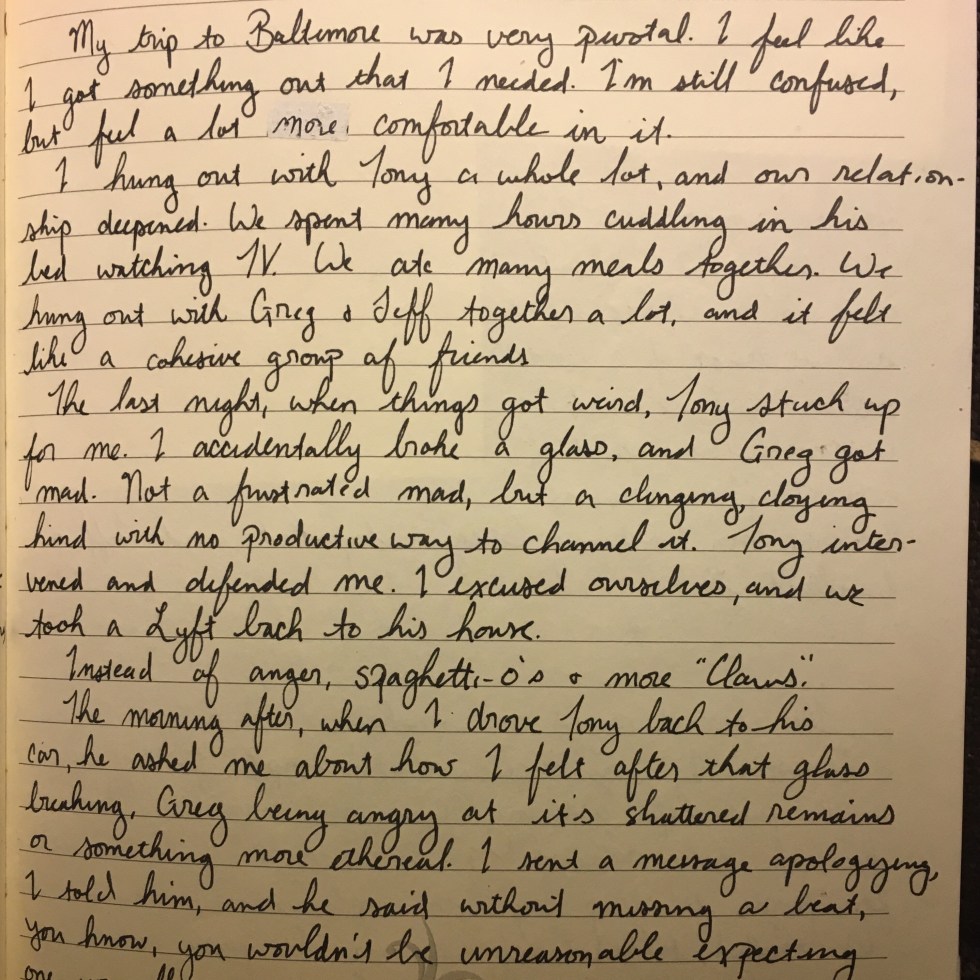 My trip to Baltimore was very pivotal. I feel like
I got something out that I needed. I'm still confused,
but feel a lot more comfortable in it.
I hung out with Tony a whole lot, and our relation-
ship deepened. We spent many hours cuddling in his
bed watching TV. We ate many meals together. We
hung out with Greg & Jeff together a lot, and it felt
like a cohesive group of friends
The last night, when things got weird, Tony stuck up
for me. I accidentally broke a glass, and Greg got
mad. Not a frustrated mad, but a clinging, cloying
kind with no productive way to channel it. Tony inter-
vened and defended me. I excused ourselves, and we
took a Lyft back to his house.
Instead of anger, spaghetti-o's & more "Claws".
The morning after, when I drove Tony back to his
car, he asked me about how I felt after that glass
breaking, Greg being angry at it's shattered remains
or something more ethereal. I sent a message apologizing,
I told him, and he said without missing a beat,
you know, you wouldn't be unreasonable expecting